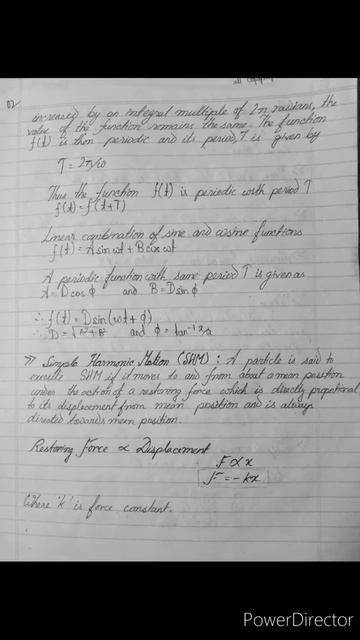 02
increased by an integral multiple of 2π radians, the
value of the function remains the same. The function
f(t) is then periodic and its period, T is given by
T = 2π/ω
Thus the function f(t) is periodic with period T
f(t) = f(t+T)
Linear combination of sine and cosine functions
f(t) = A sin ωt + B cos ωt
A periodic function with same period T is given as
A = D cos φ and B = D sin φ
∴ f(t) = D sin (ωt + φ)
∴ D = √A² + B² and φ = tan⁻¹
⇒ Simple Harmonic Motion (SHM) : A particle is said to
execute SHM if it moves to and from about a mean position
under the action of a restoring force which is directly propotional
to its displacement from mean position and is always
directed towards mean position.
Restoring Force ∝ Displacement
F ∝ x
F = - kx
Where 'k' is force constant.
PowerDirector